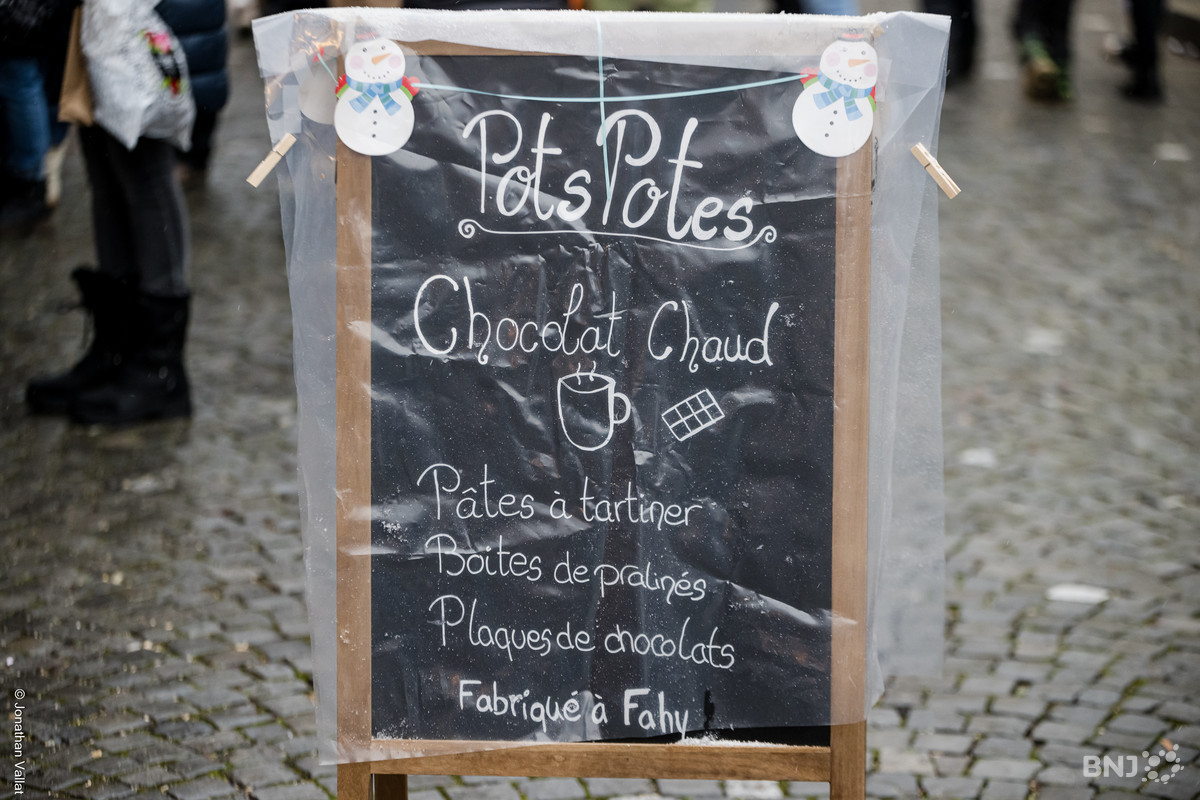 Pots Potes
Chocolat Chaud
Pâtes à tartiner
Boites de pralinés
Plaques de chocolats
Fabriqué à Fahy
© Jonathan Vallat
BNJ